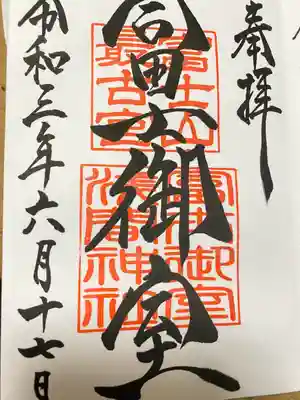 奉拝
冨士御室
富士山
最古宮
冨士御室
淺間神社
令和三年六月十七日